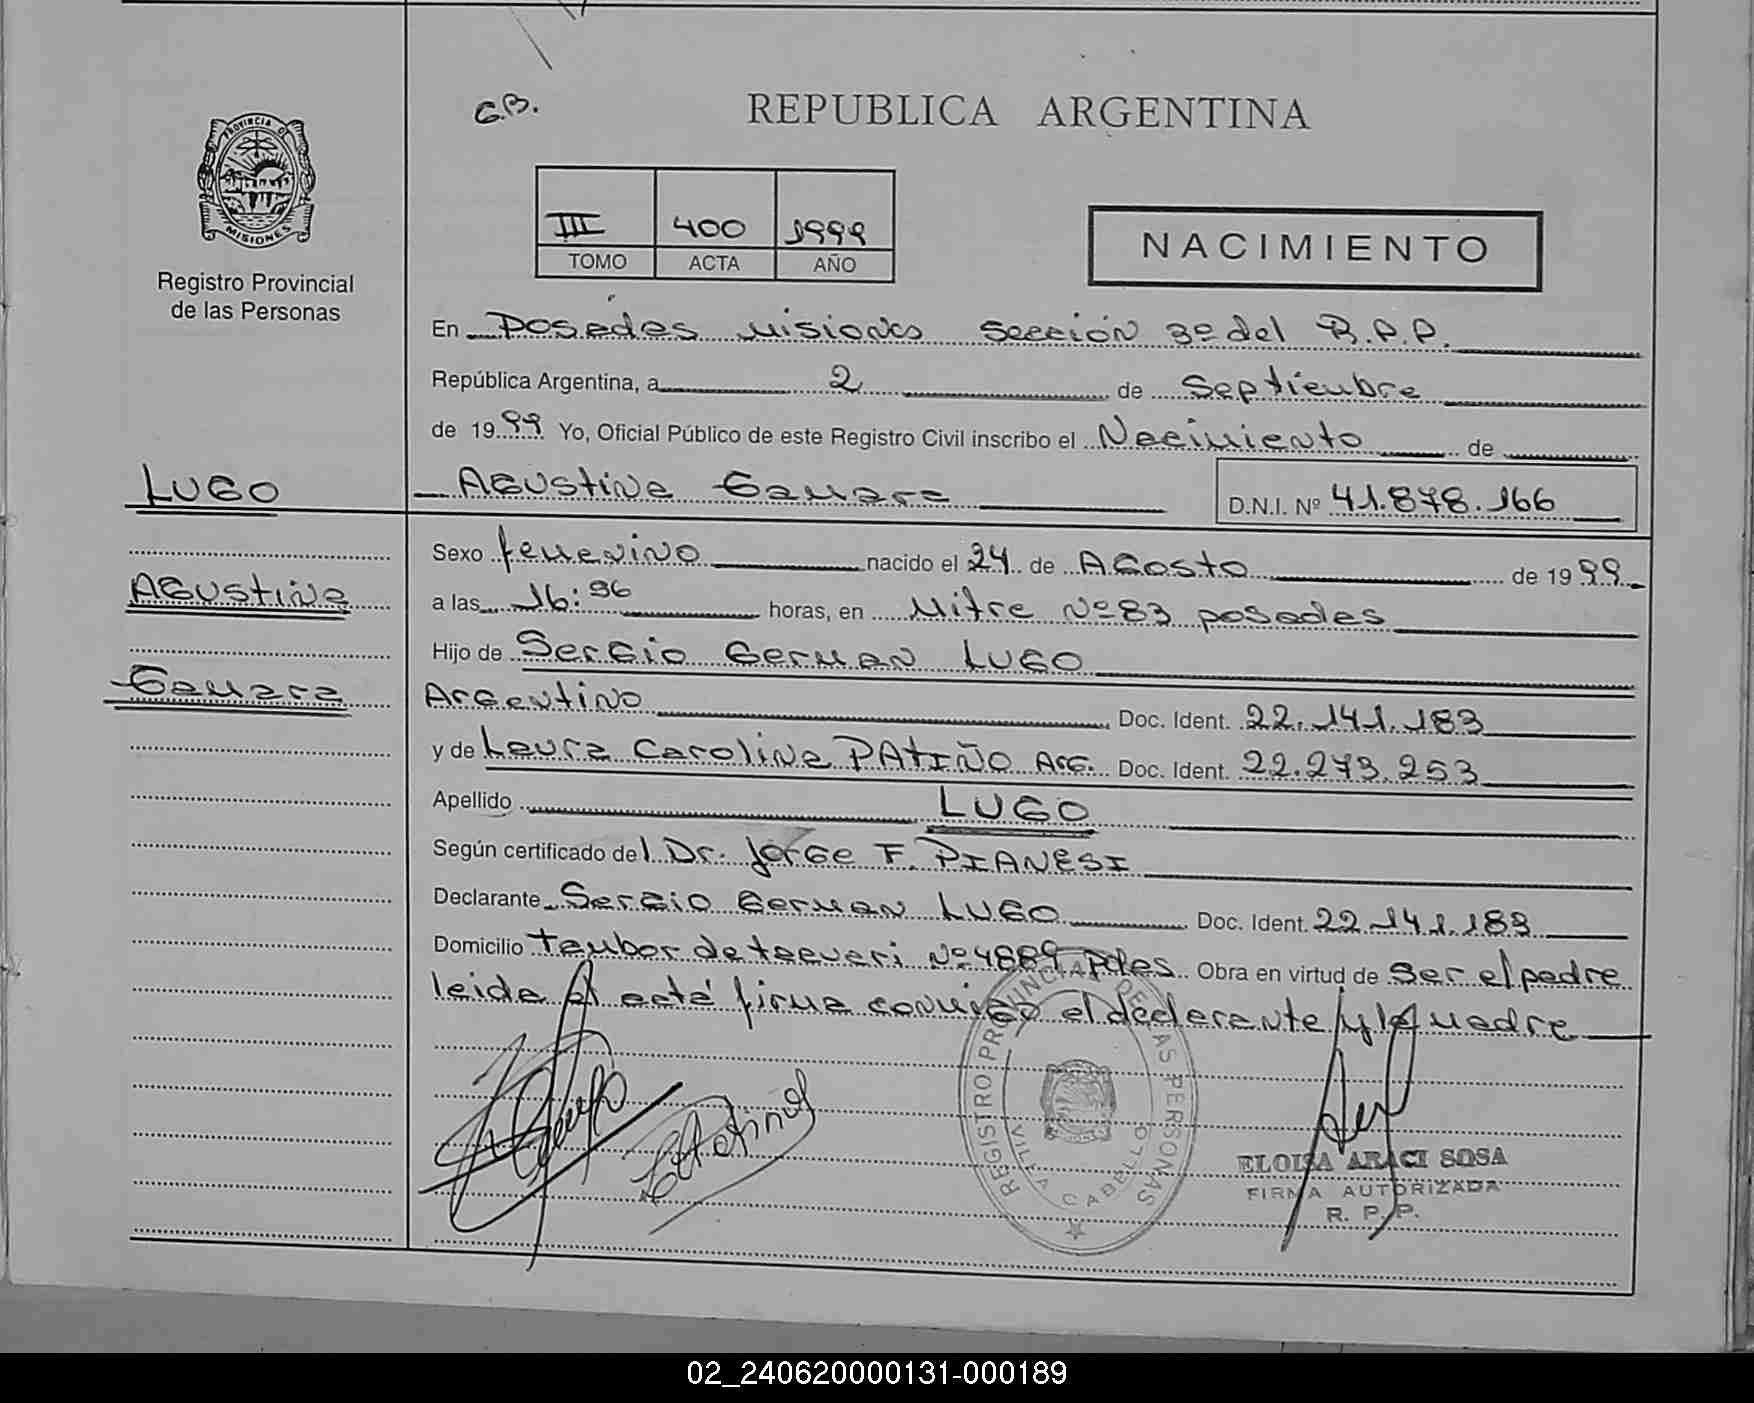 G.B.
REPUBLICA ARGENTINA
PROVINCIA DE
MISIONES
Registro Provincial
de las Personas
III 400 1999
TOMO ACTA AÑO
NACIMIENTO
En Posadas Misiones Sección 3º del R.P.P.
República Argentina, a 2 de Septiembre
de 1999 Yo, Oficial Público de este Registro Civil inscribo el Nacimiento de
LUGO
Agustina Gamara
D.N.I. Nº 41.878.166
Sexo femenino nacido el 24 de Agosto de 1999
Agustina
a las 16: horas, en Mitre Nº 83 posadas
Hijo de Sergio German LUGO
Gamara
Argentino Doc. Ident. 22.141.183
y de Laura Carolina PATIÑO Arg. Doc. Ident. 22.273.253
Apellido LUGO
Según certificado del Dr. Jorge F. PIANESI
Declarante Sergio German LUGO Doc. Ident. 22.141.183
Domicilio Tambor de Nº 4889 Pdas. Obra en virtud de ser el padre
leida el acta firma conmigo el declarante y la madre
REGISTRO PROVINCIAL DE LAS PERSONAS
VILLA CABELLO
ELOISA ARACI SOSA
FIRMA AUTORIZADA
R. P. P.
02_240620000131-000189